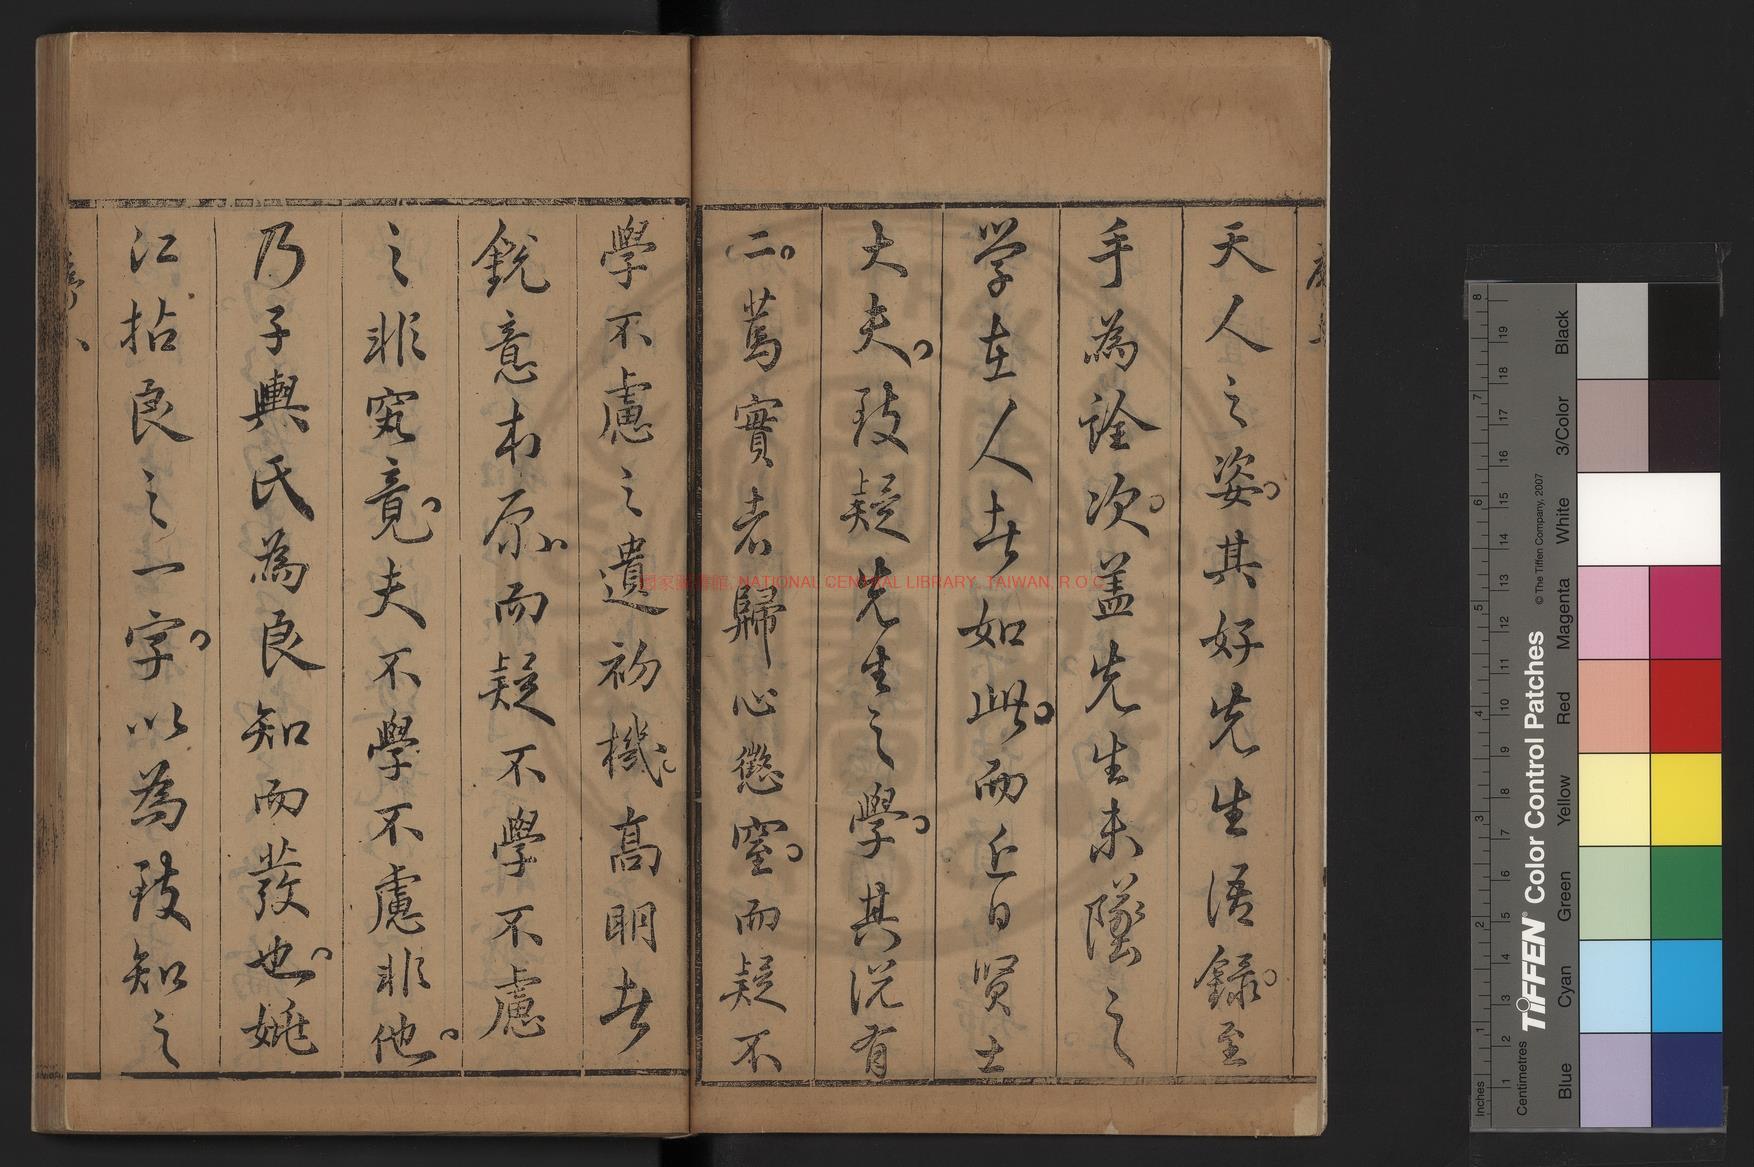 天人之姿其好先生語錄至
手為詮次蓋先生未墜之
学在人者如此而近日賢士
大夫致疑先生之學其説有
二篤實者歸心懲窒而疑不
學不慮之遺初機高明者
銳意本原而疑不學不慮
之非究竟夫不學不慮非他
乃子輿氏為良知而發也姚
江拈良之一字以為致知之
國家圖書館, NATIONAL CENTRAL LIBRARY, TAIWAN, R.O.C.
TIFFEN® Color Control Patches
© The Tiffen Company, 2007
Centimetres
Inches
Blue
Cyan
Green
Yellow
Red
Magenta
White
3/Color
Black